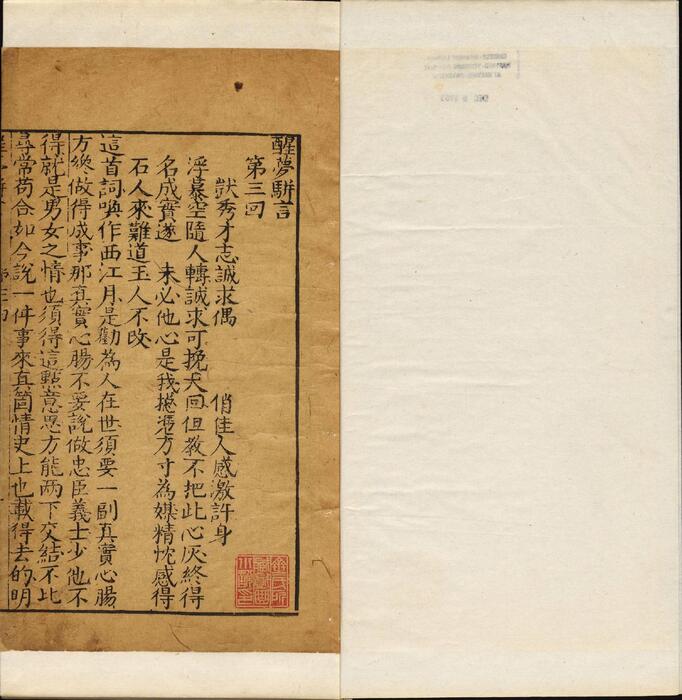 醒夢駢言
第三回
獃秀才志誠求偶　俏佳人感激許身
浮暴空隨人轉誠求可挽天回但教不把此心灰終得
名成寳遂　未必他心是我捲馮方寸為媒精忱感得
石人來難道玉人不改
這首詞喚作西江月是勸為人在世須要一副真實心腸
方纔做得成事那真實心腸不要說做忠臣義士少他不
得就是男女之情也須得這點意思方能兩下交結不比
尋常苟合如今說一件事來真箇情史上也載得去的明